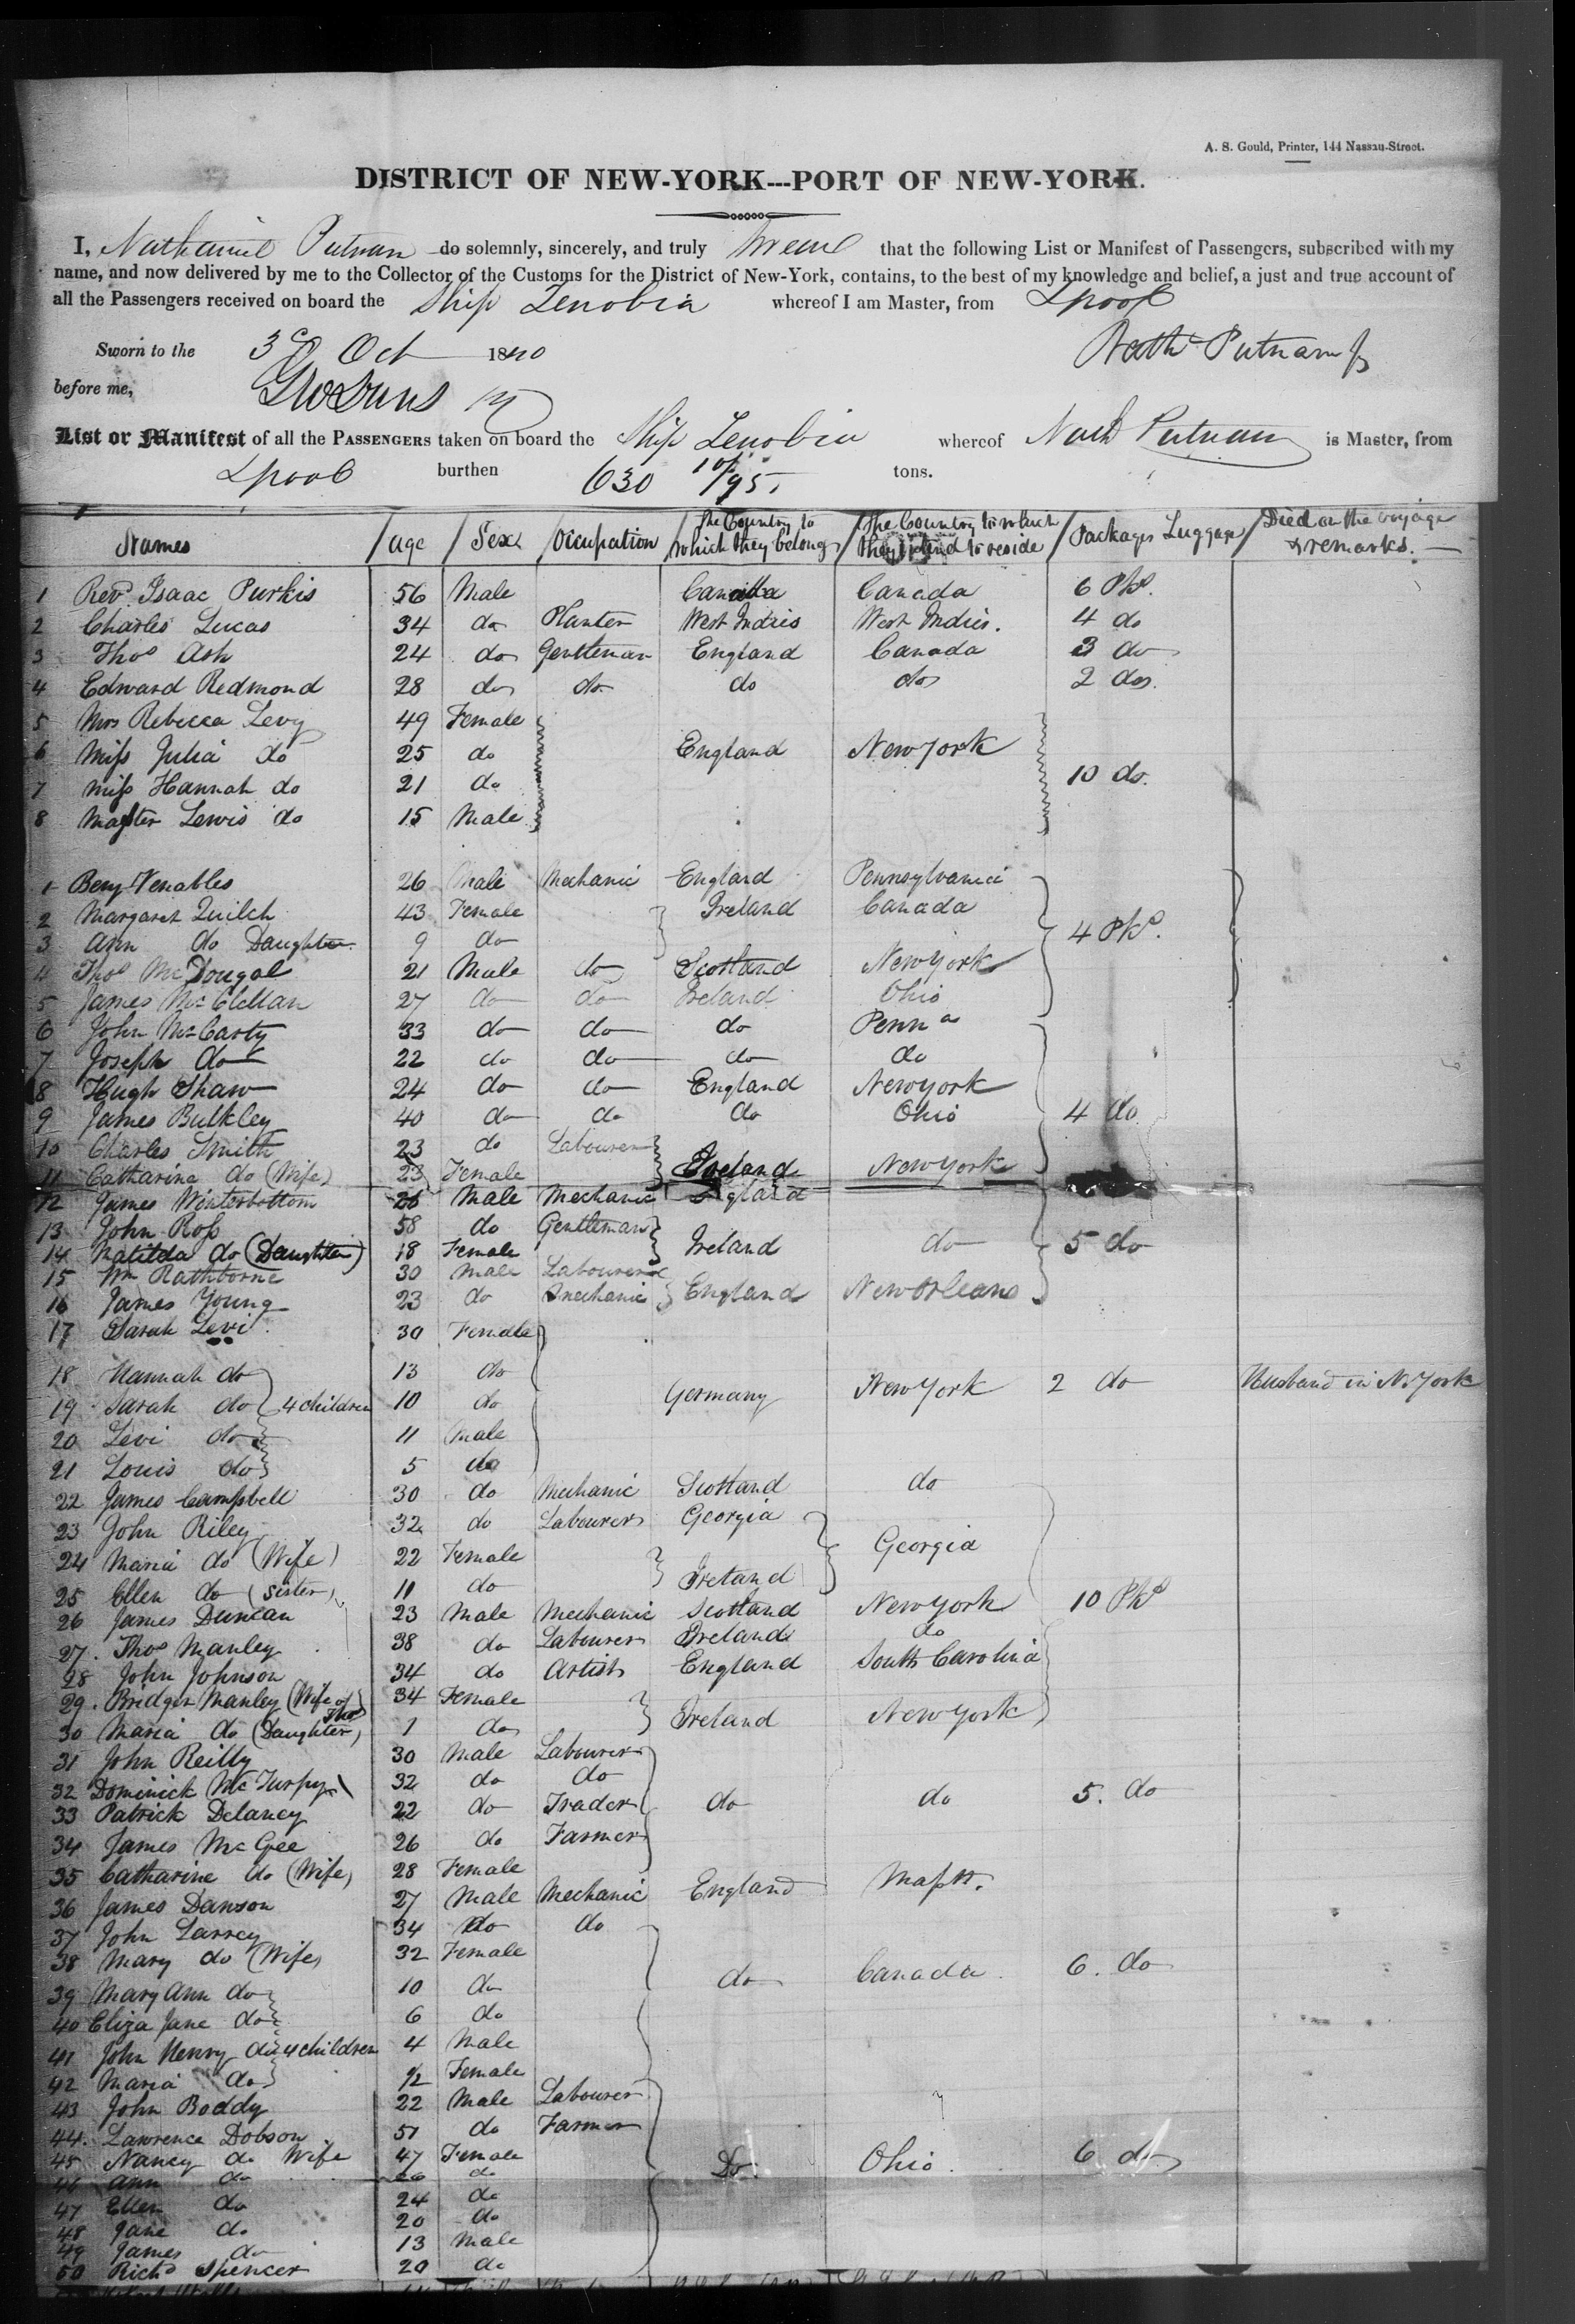 A. S. Gould, Printer, 144 Nassau-Street.
DISTRICT OF NEW-YORK---PORT OF NEW-YORK.
I, Nathaniel Putnam do solemnly, sincerely, and truly swear that the following List or Manifest of Passengers, subscribed with my
name, and now delivered by me to the Collector of the Customs for the District of New-York, contains, to the best of my knowledge and belief, a just and true account of
all the Passengers received on board the Ship Zenobia whereof I am Master, from Lpool
Sworn to the 3d Oct 1840 Nathl Putnam Jr
before me,
List or Manifest of all the PASSENGERS taken on board the Ship Zenobia whereof Nath Putnam is Master, from
Lpool burthen 630 10/95 tons.
Names Age Sex Occupation The Country to which they belong The Country to which they intend to reside Packages Luggage Died on the voyage & remarks.
1 Revd. Isaac Purkis 56 Male Canada Canada 6 Pks.
2 Charles Lucas 34 do Planter West Indies West Indies. 4 do
3 Thos Ash 24 do Gentleman England Canada 3 do
4 Edward Redmond 28 do do do do 2 do.
5 Mrs Rebecca Levy 49 Female
6 Miss Julia do 25 do England New York
7 Miss Hannah do 21 do 10 do.
8 Master Lewis do 15 Male
1 Benj Venables 26 Male Mechanic England Pennsylvania
2 Margaret Quilch 43 Female Ireland Canada
3 Ann do Daughter 9 do 4 Pks.
4 Thos McDougal 21 Male do Scotland New York
5 James McClellan 27 do do Ireland Ohio
6 John McCarty 33 do do do Penna
7 Joseph do 22 do do do do
8 Hugh Shaw 24 do do England New York
9 James Bulkley 40 do do do Ohio 4 do
10 Charles Smith 23 do Labourer
11 Catharine do (Wife) 23 Female Ireland New York
12 James Winterbottom 26 Male Mechanic England
13 John Ross 58 do Gentleman
14 Matilda do (Daughter) 18 Female Ireland do 5 do
15 Wm Rathborne 30 Male Labourer
16 James Young 23 do Mechanic England New Orleans
17 Sarah Levi 30 Female
18 Hannah do 13 do
19 Sarah do 4 children 10 do Germany New York 2 do Husband in N. York
20 Levi do 11 Male
21 Louis do 5 do
22 James Campbell 30 do Mechanic Scotland do
23 John Riley 32 do Labourer Georgia
24 Maria do (Wife) 22 Female Georgia
25 Ellen do (sister) 11 do Ireland
26 James Duncan 23 Male Mechanic Scotland New York 10 Pks
27. Thos Manley 38 do Labourer Ireland do
28 John Johnson 34 do Artist England South Carolina
29. Bridget Manley (Wife of Thos) 34 Female
30 Maria do (Daughter) 1 do Ireland New York
31 John Reilly 30 Male Labourer
32 Dominick Mc 32 do do
33 Patrick Delaney 22 do Trader do do 5. do
34 James McGee 26 do Farmer
35 Catharine do (Wife) 28 Female
36 James Dawson 27 Male Mechanic England Masstts.
37 John Larrey 34 do do
38 Mary do (Wife) 32 Female
39 Mary Ann do 10 do do Canada 6. do
40 Eliza Jane do 6 do
41 John Henry do 4 children 4 Male
42 Maria do 1/2 Female
43 John Boddy 22 Male Labourer
44. Lawrence Dobson 51 do Farmer
45 Nancy do Wife 47 Female Do. Ohio 6 do
46 Ann do 26 do
47 Ellen do 24 do
48 Jane do 20 do
49 James do 13 Male
50 Richd Spencer 20 do